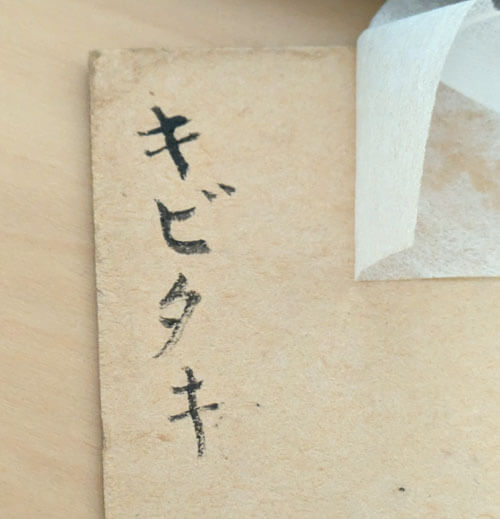 キビタキ